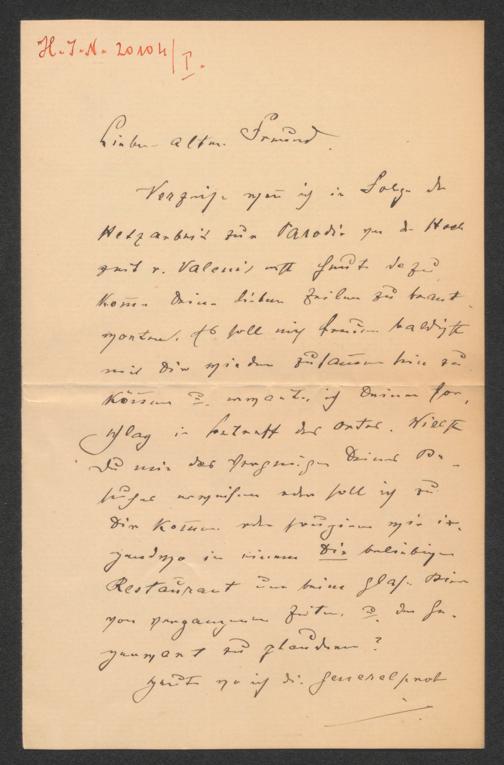 H. I. N. 20104/I.
Lieber alter Freund.
Verzeihe wenn ich in Folge der
Hetzarbeit zur Parodie von der Hoch
zeit v. Valeni, erst heute dazu
komme Deine lieben Zeilen zu beant-
worten. Es soll mich freuen baldigst
mit Dir wieder zusammen sein zu
können u. erwarte ich Deinen Vor-
schlag in betreff des Ortes. Willst
Du mir das Vergnügen Deines Be-
suches erweisen oder soll ich zu
Dir kommen oder 
gendwo in einem Dir beliebigen
Restaurant um beim Glase Bier
von vergangenen Zeiten u. der Ge-
genwart zu plaudern?
Heute wo ich die Generalprob